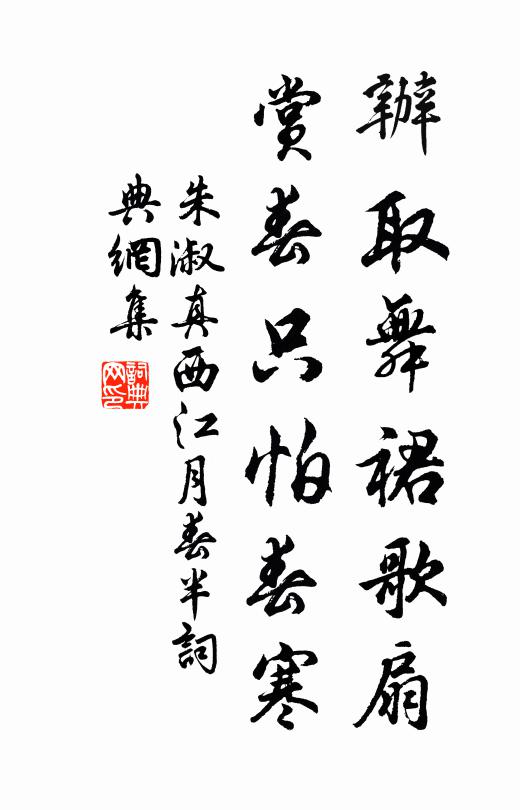 辦取舞裙歌扇
賞春只怕春寒
朱淑真西江月春半詞
典網集
詞典网印